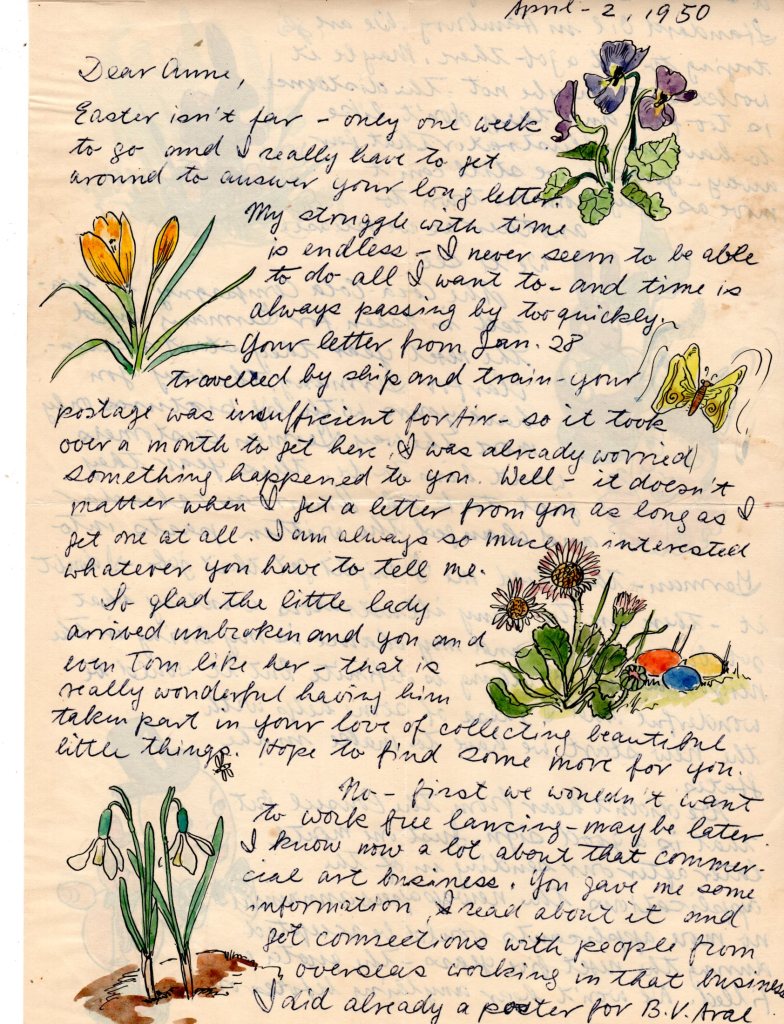 April - 2, 1950
Dear Anne,
Easter isn't far - only one week
to go and I really have to get
around to answer your long letter.
My struggle with time
is endless - I never seem to be able
to do all I want to - and time is
always passing by too quickly.
Your letter from Jan. 28
travelled by ship and train - your
postage was insufficient for Air - so it took
over a month to get here, I was already worried
something happened to you. Well - it doesn't
matter when I get a letter from you as long as I
get one at all. I am always so much interested
whatever you have to tell me.
So glad the little lady
arrived unbroken and you and
even Tom like her - that is
really wonderful having him
taken part in your love of collecting beautiful
little things. Hope to find some more for you.
No - first we wouldn't want
to work free lancing - may be later.
I know now a lot about that commer-
cial art business. You gave me some
information, I read about it and
get connections with people from
overseas working in that business
I did already a poster for B.V. Aral